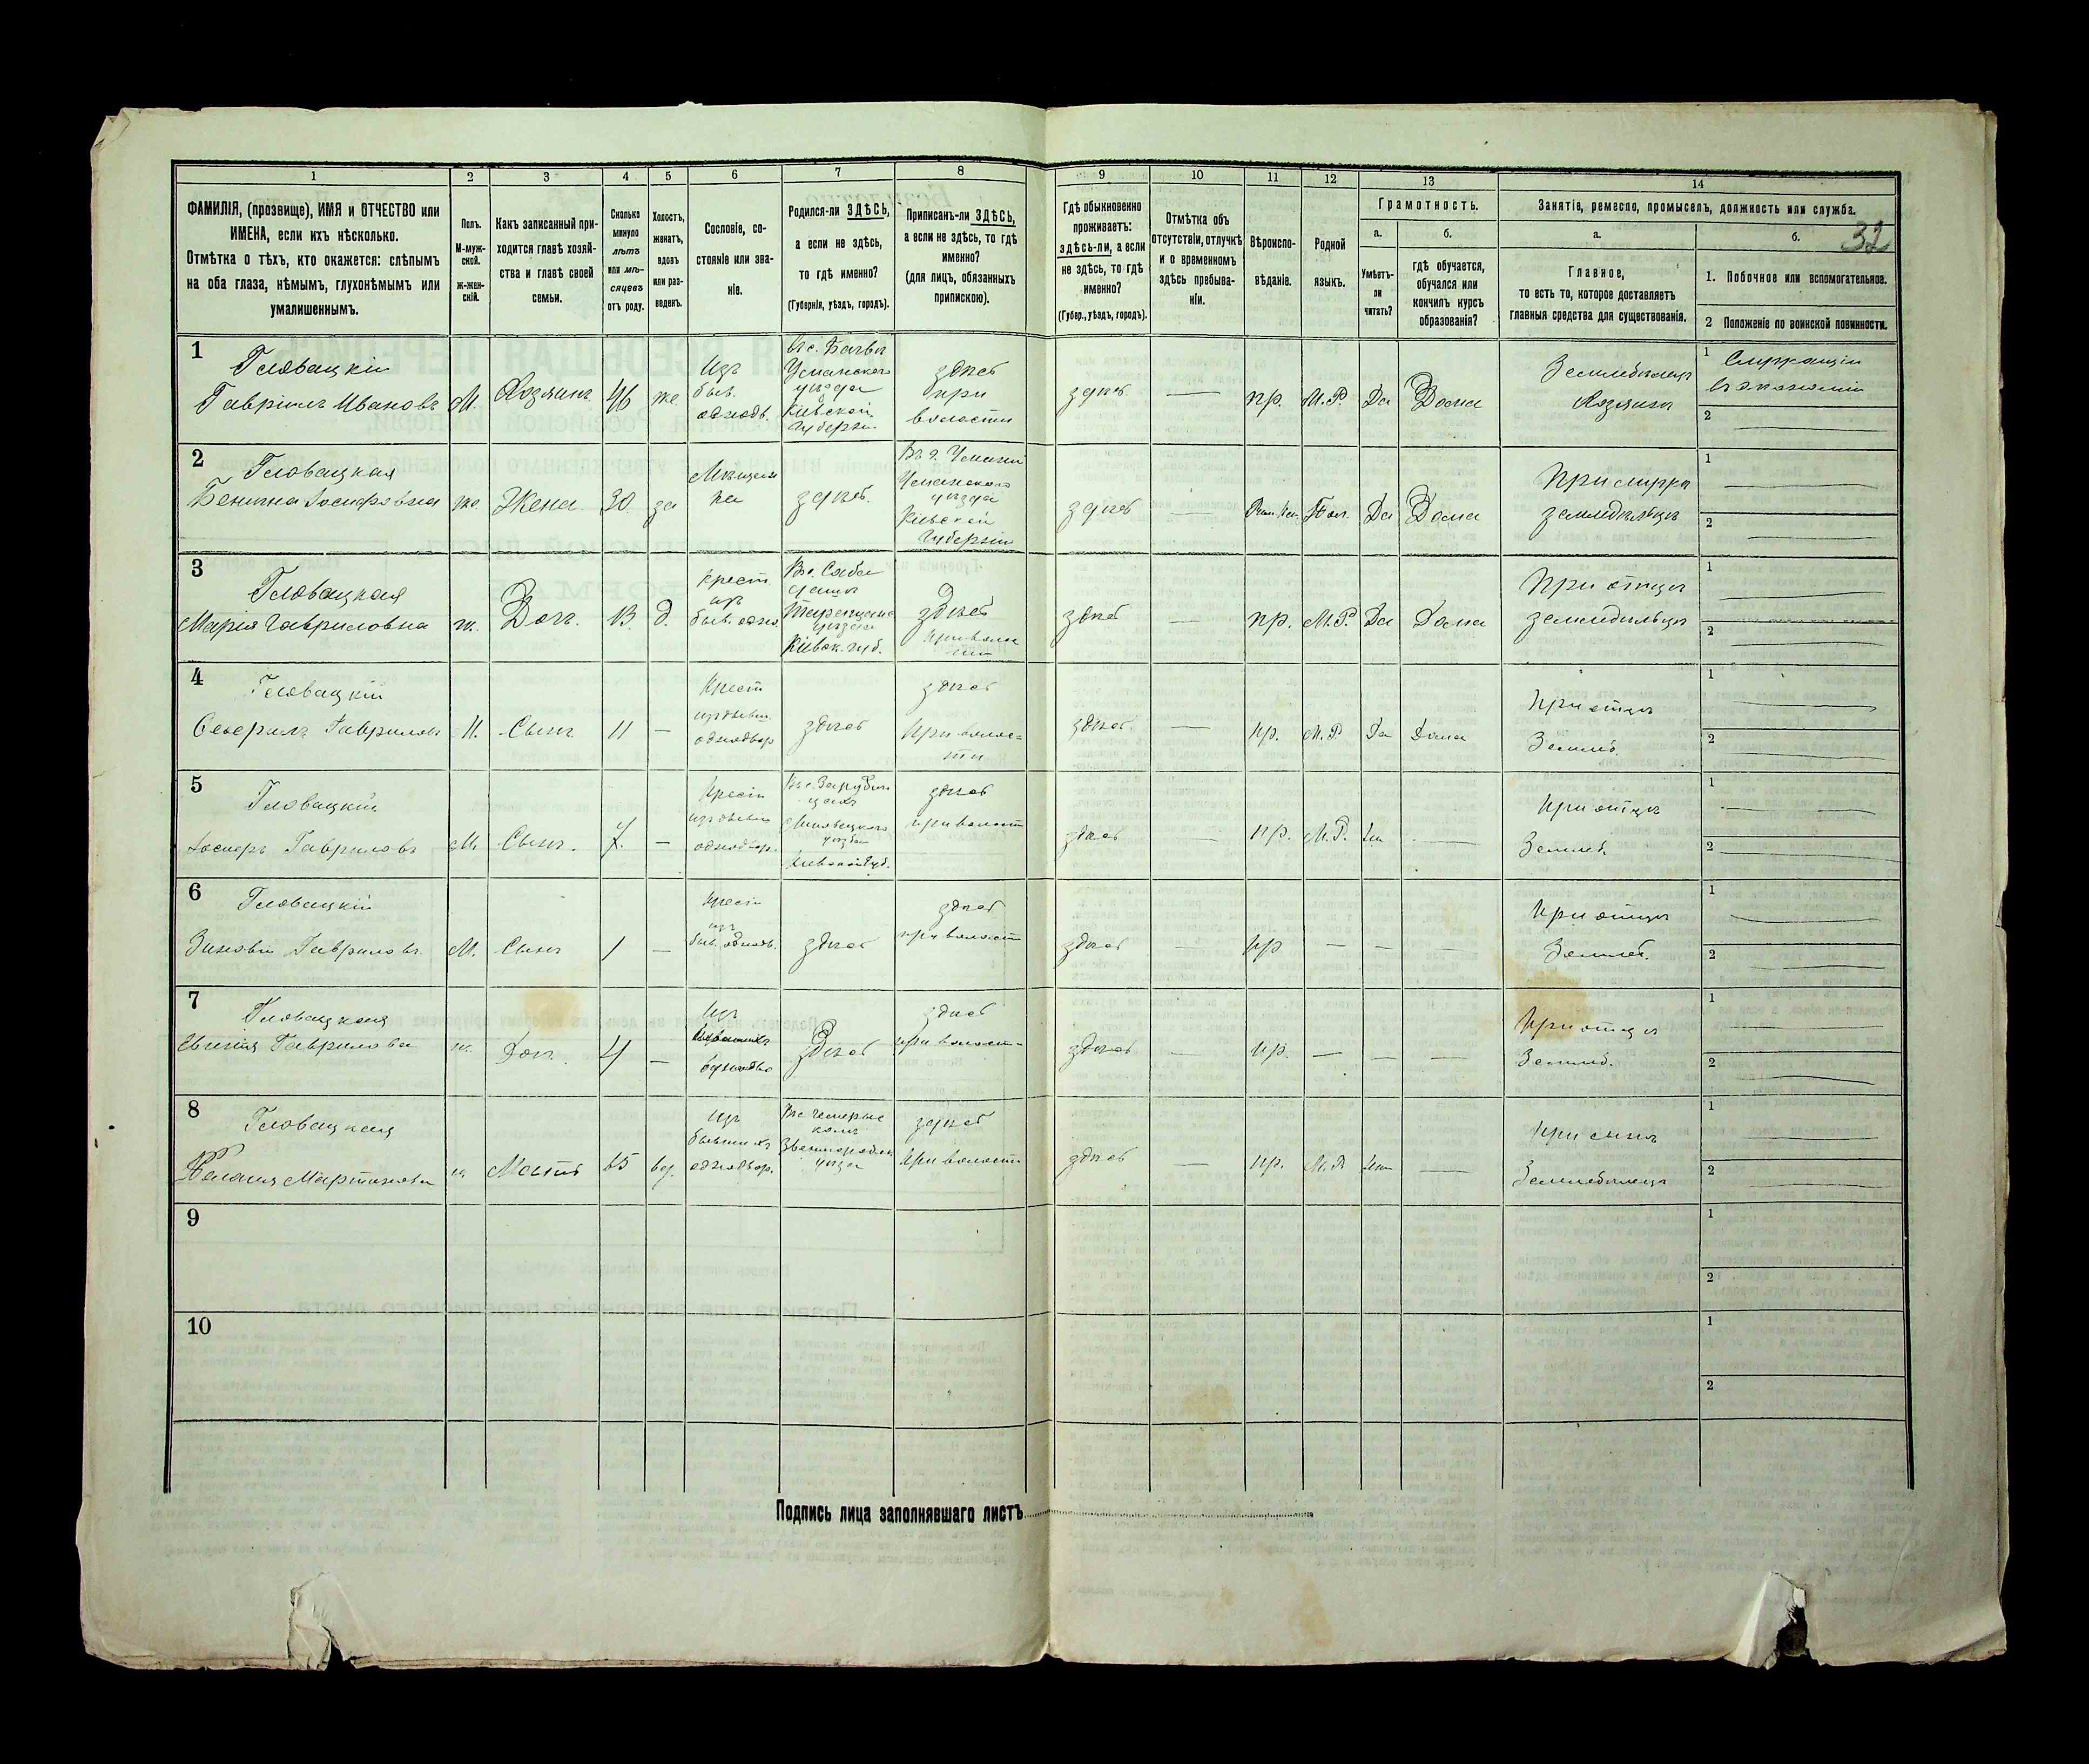 1 2 3 4 5 6 7 8 9 10 11 12 13 14
ФАМИЛІЯ, (прозвище), ИМЯ и ОТЧЕСТВО или
ИМЕНА, если ихъ нѣсколько.
Отмѣтка о тѣхъ, кто окажется: слѣпымъ
на оба глаза, нѣмымъ, глухонѣмымъ или
умалишеннымъ.
Полъ.
М-муж-
ской.
ж-жен-
скій.
Какъ записанный при-
ходится главѣ хозяй-
ства и главѣ своей
семьи.
Сколько
минуло
лѣтъ
или мѣ-
сяцевъ
отъ роду.
Холостъ,
женатъ,
вдовъ
или раз-
веденъ.
Сословіе, со-
стояніе или зва-
ніе.
Родился-ли ЗДѢСЬ,
а если не здѣсь,
то гдѣ именно?
(Губернія, уѣздъ, городъ).
Приписанъ-ли ЗДѢСЬ,
а если не здѣсь, то гдѣ
именно?
(для лицъ, обязанныхъ
припискою).
Гдѣ обыкновенно
проживаетъ:
здѣсь-ли, а если
не здѣсь, то гдѣ
именно?
(Губер., уѣздъ, городъ).
Отмѣтка объ
отсутствіи, отлучкѣ
и о временномъ
здѣсь пребыва-
ніи.
Вѣроиспо-
вѣданіе.
Родной
языкъ.
Грамотность.
а.
Умѣетъ-
ли
читать?
б.
гдѣ обучается,
обучался или
кончилъ курсъ
образованія?
Занятіе, ремесло, промыселъ, должность или служба.
а.
Главное,
то есть то, которое доставляетъ
главныя средства для существованія.
б.
32
1. Побочное или вспомогательное.
2 Положеніе по воинской повинности.
1
Головацкій
Гавріилъ Ивановъ
М.
Хозяинъ
46
же.
Изъ
быв.
однодв.
Уманского
уѣзда
Кіевской
губерніи
здѣсь
при
волости
здѣсь
—
пр.
М.Р.
Да
Дома
Земледѣлецъ
Хозяинъ
1
2
2
Головацкая
Іосифовна
же.
Жена
30
за
Мѣщан
ка
здѣсь.
Въ г. Умани
Уманского
уѣзда
Кіевской
Губерніи
здѣсь
—
Рим. Кат.
Пол.
Да
Дома
При мужѣ
земледѣльцѣ
1
2
3
Головацкая
Марія Гавриловна
ж.
Доч.
13
д.
Крест
изъ
быв. одно.
уѣзда
Кіевск. губ.
здѣсь
при волос
ти
здѣсь
—
пр.
М.Р.
Да
Дома
При отцѣ
земледѣльцѣ
1
2
4
Головацкій
Северинъ Гавриловъ
М.
Сынъ
11
—
Крест
изъ бывш.
однодвор
здѣсь
здѣсь
при волос=
ти
здѣсь.
—
пр.
М.Р.
Да
Дома
При отцѣ
Землед.
1
2
5
Головацкій
Іосифъ Гавриловъ
М.
Сынъ.
7.
—
Крест
изъ бывш
однодвор.
уѣзда
здѣсь
при волост
здѣсь
—
пр.
М.Р.
—
При отцѣ
Землед.
1
2
6
Головацкій
Зиновій Гавриловъ.
М.
Сынъ
1
—
Крест
изъ
быв. однодв.
здѣсь
здѣсь
при волост
здѣсь
—
пр
—
—
—
При отцѣ
Землед.
1
2
7
Головацкая
Гаврилова
ж.
Доч.
4
—
Изъ
бывшихъ
здѣсь
здѣсь
при волост-
здѣсь
—
пр.
—
—
—
При отцѣ
Землед.
1
2
8
Головацкая
Мартинова
ж.
Мать
65
вд.
Изъ
бывшихъ
однодвор.
уѣзда
здѣсь
при волости
здѣсь
—
пр.
М.Р
—
При сынѣ
Земледѣльцѣ
1
2
9
1
2
10
1
2
Подпись лица заполнявшаго листъ